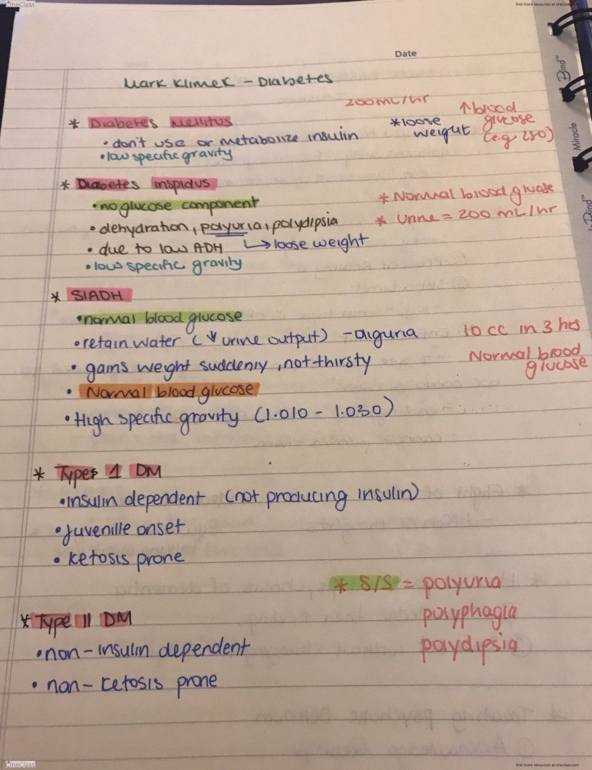 OneClass
find more resources at oneclass.com
Date
Mark Klimek - Diabetes
200mL/hr
* Diabetes Mellitus
• don't use or metabolize insulin
• low specific gravity
*loose weight
↑blood glucose (e.g 250)
* Diabetes inspidus
• no glucose component
• dehydration, polyuria, polydipsia
• due to low ADH ↳ loose weight
• low specific gravity
* Normal blood glucose
* Urine = 200 mL/hr
* SIADH
• normal blood glucose
• retain water (↓ urine output) - oliguria
• gains weight suddenly, not thirsty
• Normal blood glucose
• High specific gravity (1.010 - 1.030)
10 cc in 3 hrs
Normal blood
glucose
* Type 1 DM
• insulin dependent (not producing insulin)
• juvenille onset
• ketosis prone
* S/S = polyuria
polyphagia
polydipsia
* Type II DM
• non-insulin dependent
• non-ketosis prone
Miracle
Bind
OneClass
find more resources at oneclass.com